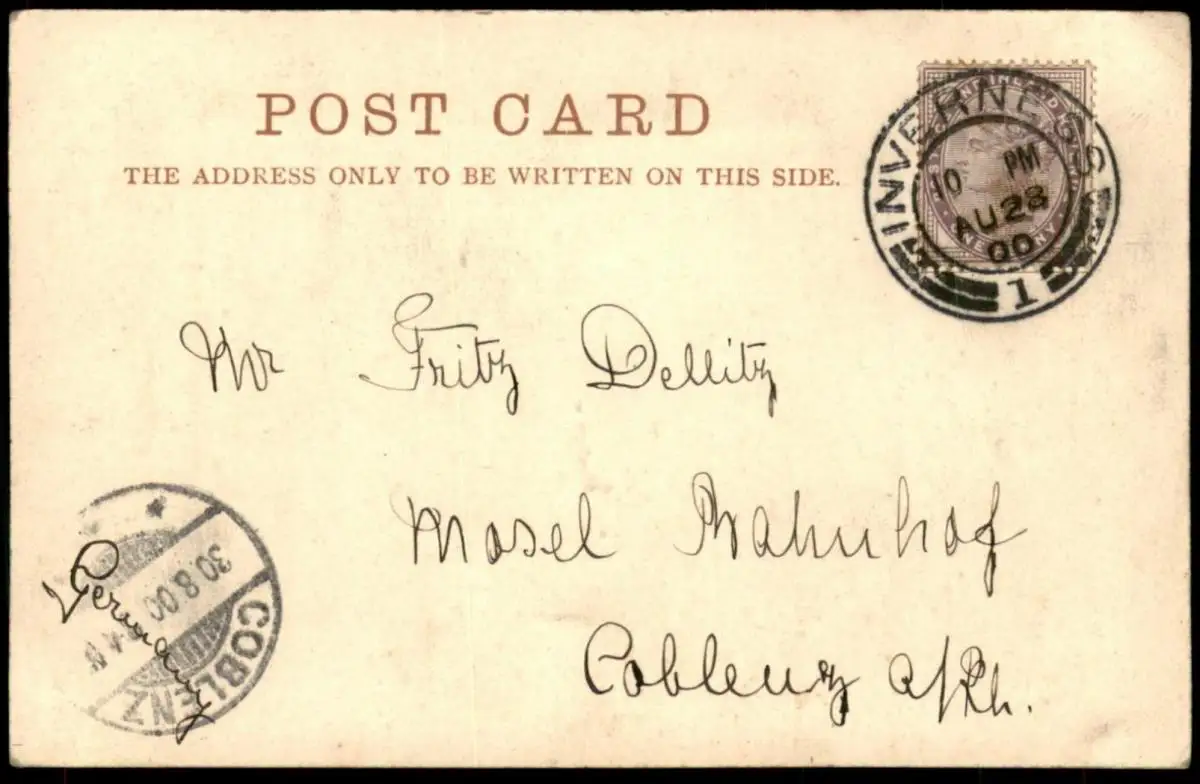 POST CARD
THE ADDRESS ONLY TO BE WRITTEN ON THIS SIDE.
INVERNESS
10 PM
AU 28
00
1
Mr Fritz Dellitz
Mosel Bahnhof
Coblenz a/Rh.
Germany
COBLENZ
30.8.00